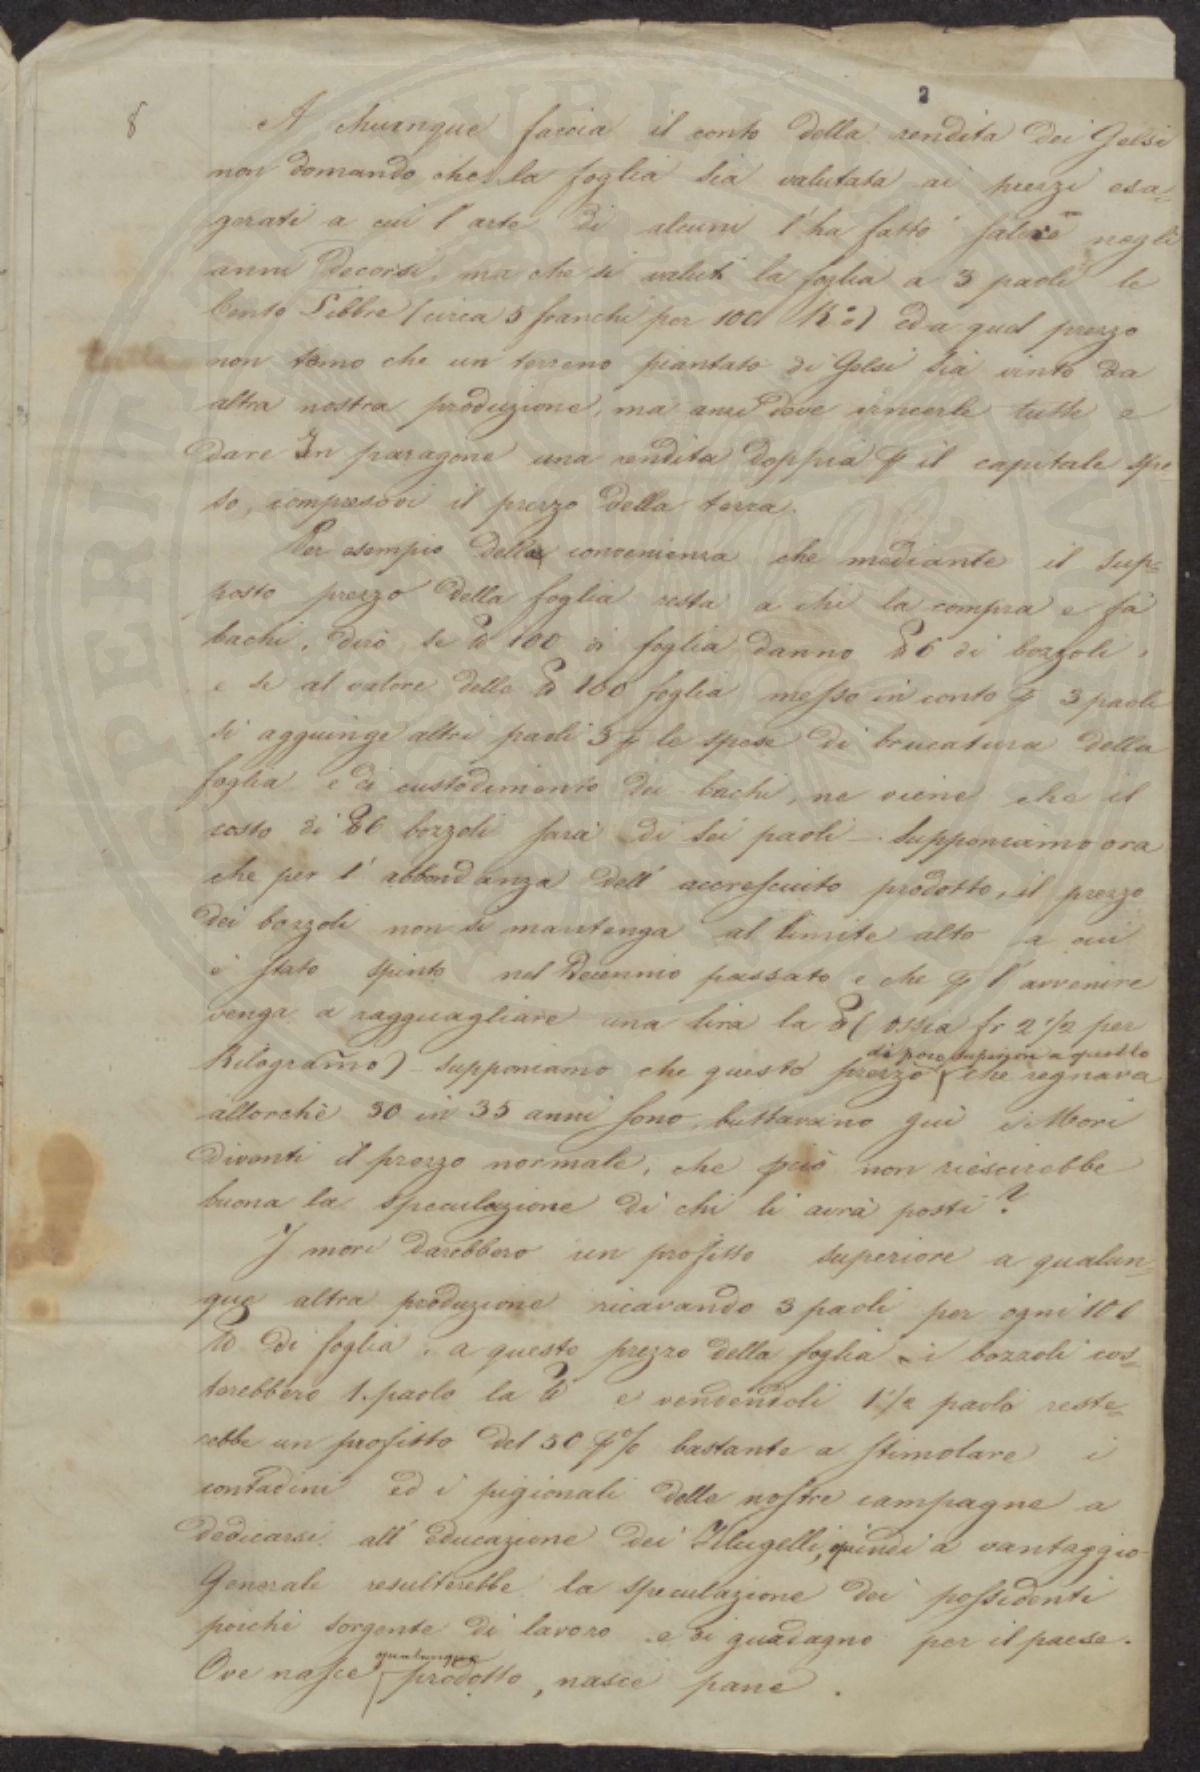 2
8
A chiunque faccia il conto della rendita dei Gelsi
non domando che la foglia sia valutata ai prezzi esa=
gerati a cui l'arte di alcuni l'ha fatto salire negli
anni decorsi, ma che si valuti la foglia a 3 paoli le
Cento Libbre (circa 5 franchi per 100 K.°) ed a quel prezzo
non temo che un terreno piantato di Gelsi sia vinto da
altra nostra produzione, ma anzi deve vincerle tutte e
dare In paragone una rendita doppia p il capitale spe=
so, compresovi il prezzo della terra.
Per esempio della convenienza che mediante il sup=
posto prezzo della foglia resta a chi la compra e fà
bachi, dirò, se ℔ 100 di foglia danno ℔ 6 di bozzoli,
e se al valore delle ℔ 100 foglia messo in conto p 3 paoli
si aggiunge altri paoli 3 p le spese di brucatura della
foglia e di custodimento dei bachi, ne viene che il
costo di ℔ 6 bozzoli sarà di sei paoli - Supponiamo ora
che per l'abbondanza dell'accresciuto prodotto, il prezzo
dei bozzoli non si mantenga al limite alto a cui
è stato spinto nel Decennio passato e che p l'avvenire
venga a ragguagliare una lira la ℔ (ossia fr 2 1/2 per
Kilogramo) - supponiamo che questo prezzo che regnava
di poco superiore a quello
allorchè 30 in 35 anni sono, buttavano giù i Mori
diventi il prezzo normale, che può non riescirebbe
buona la speculazione di chi li avrà posti?
I mori darebbero un profitto superiore a qualun=
que altra produzione ricavando 3 paoli per ogni 100
℔ di foglia, a questo prezzo della foglia i bozzoli cos=
terebbero 1. paolo la ℔ e vendendoli 1 1/2 paolo reste=
rebbe un profitto del 50 p % bastante a stimolare i
contadini ed i pigionali delle nostre campagne a
dedicarsi all'educazione dei Filugelli, quindi a vantaggio
Generale resulterebbe la speculazione dei possidenti
poichè sorgente di lavoro e di guadagno per il paese.
qualunque
Ove nasce prodotto, nasce pane.